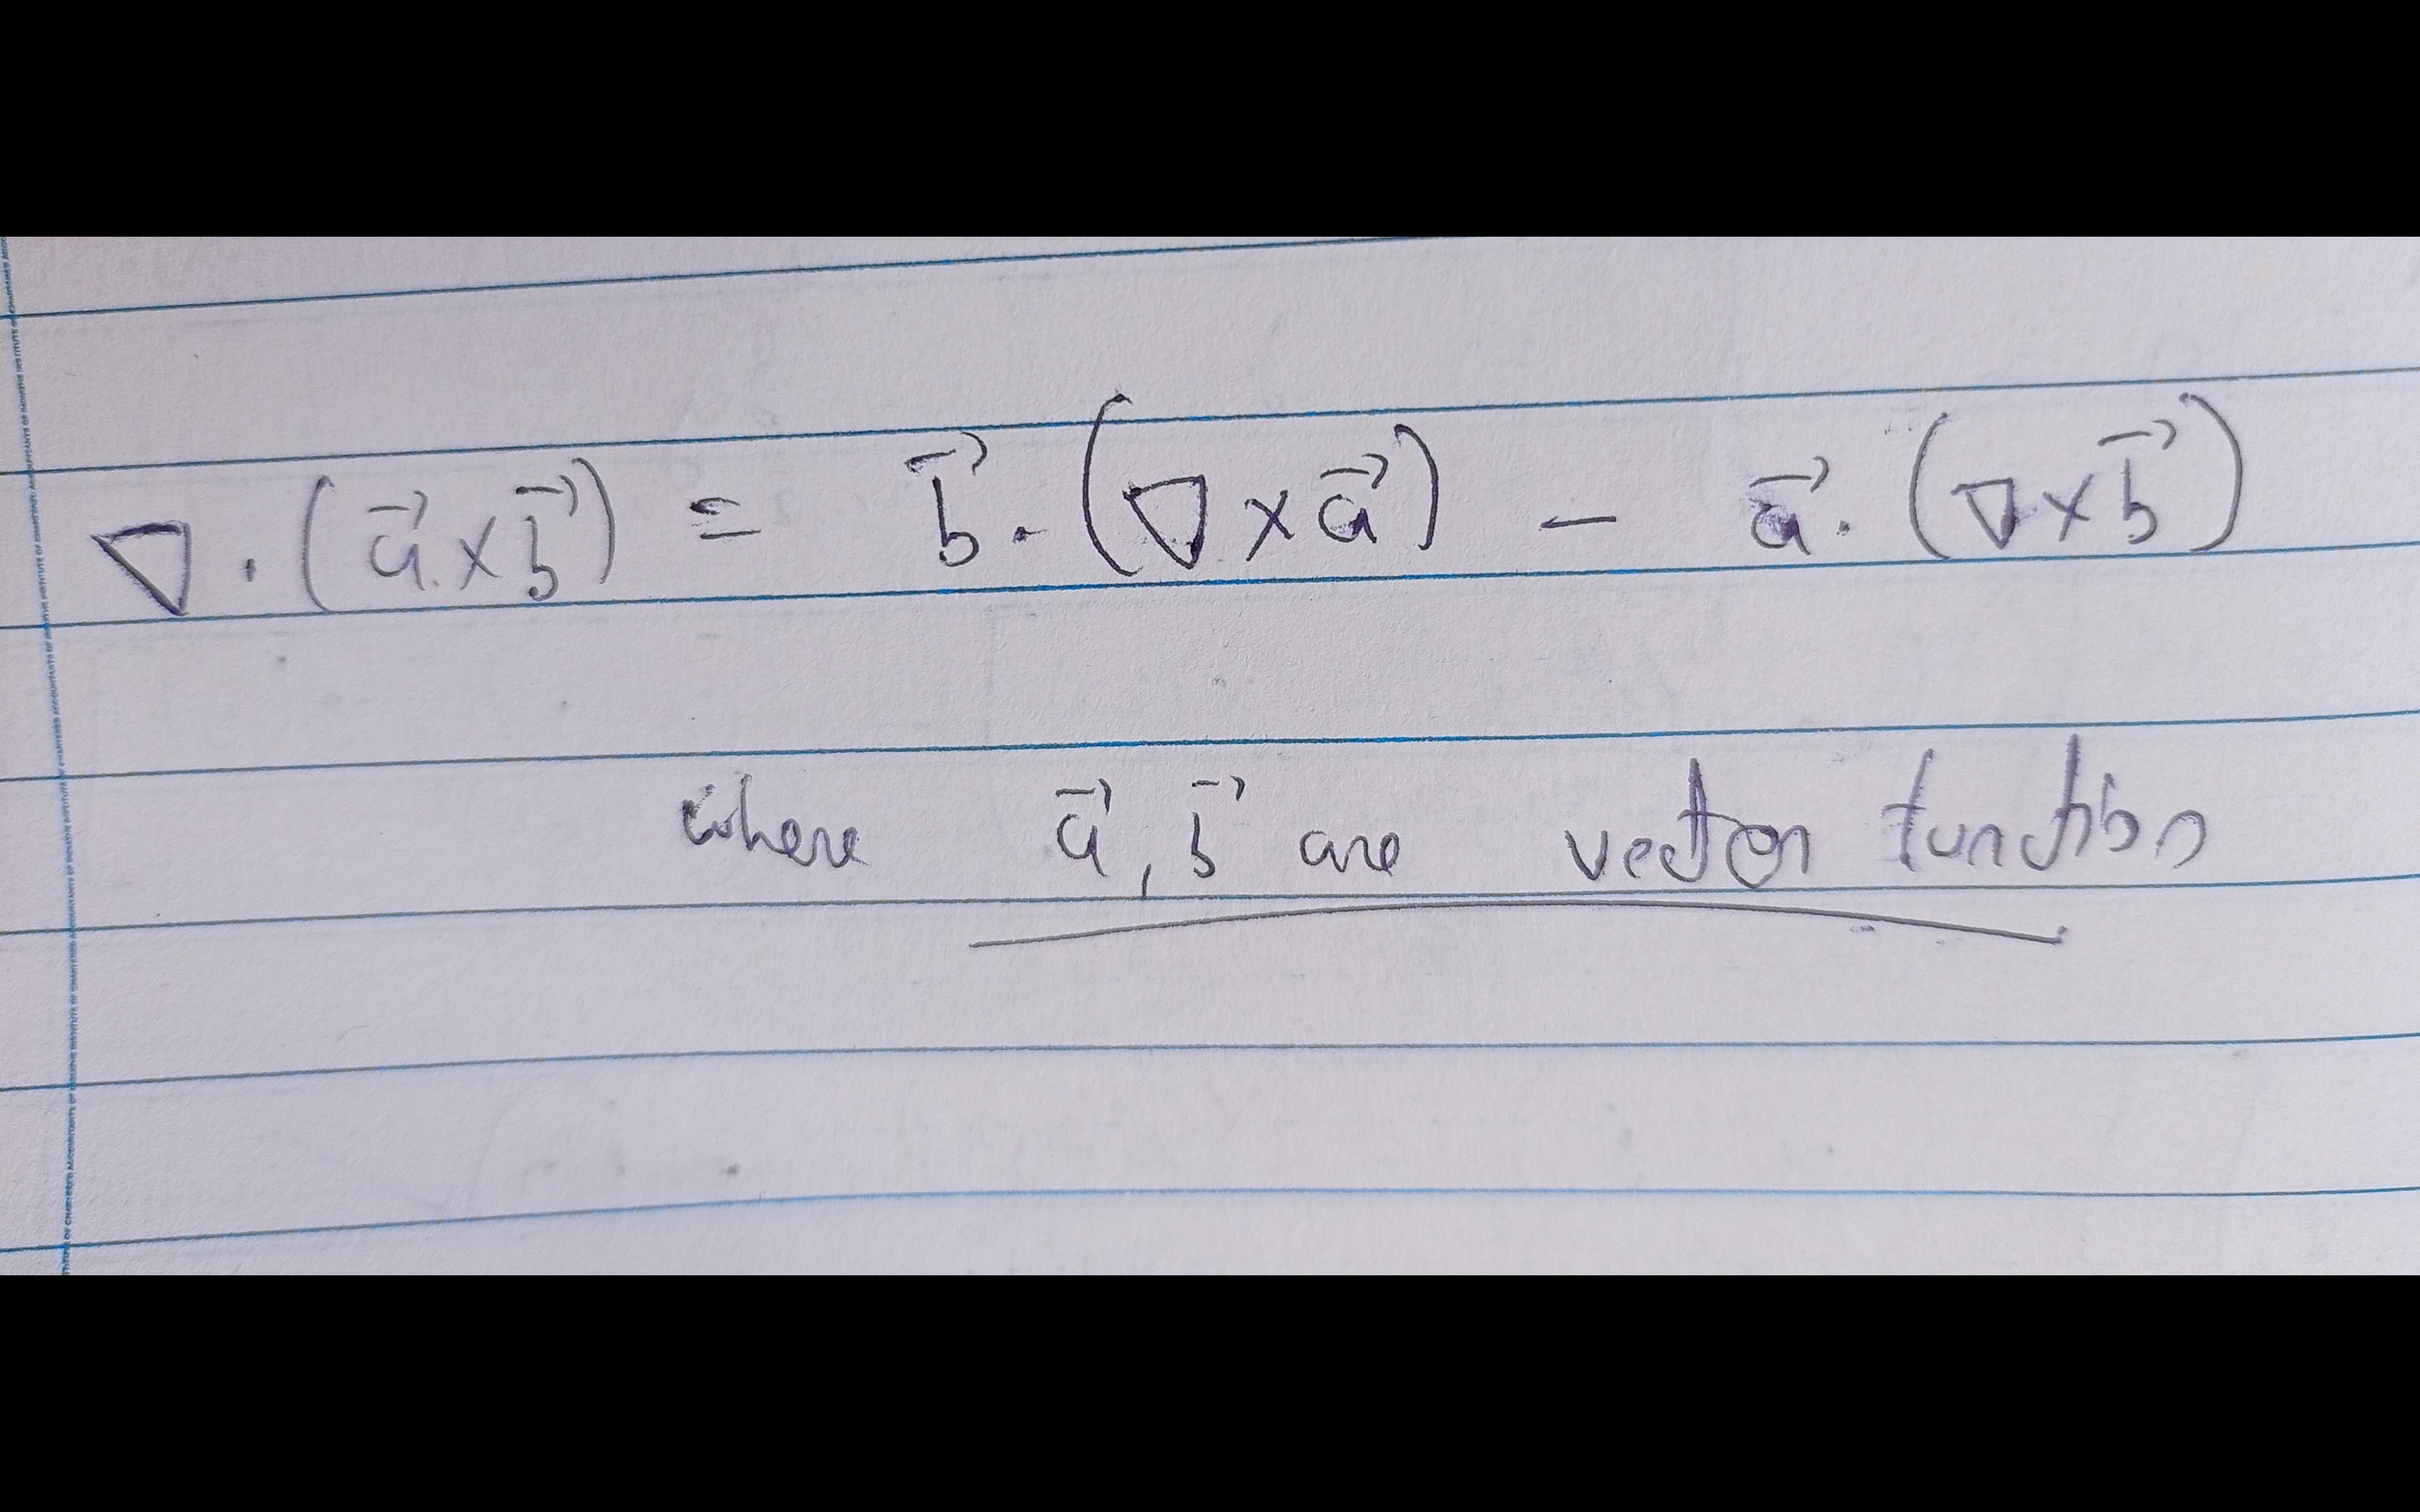 ∇ · (a⃗ × b⃗) = b⃗ · (∇ × a⃗) − a⃗ · (∇ × b⃗)
where a⃗, b⃗ are vector function